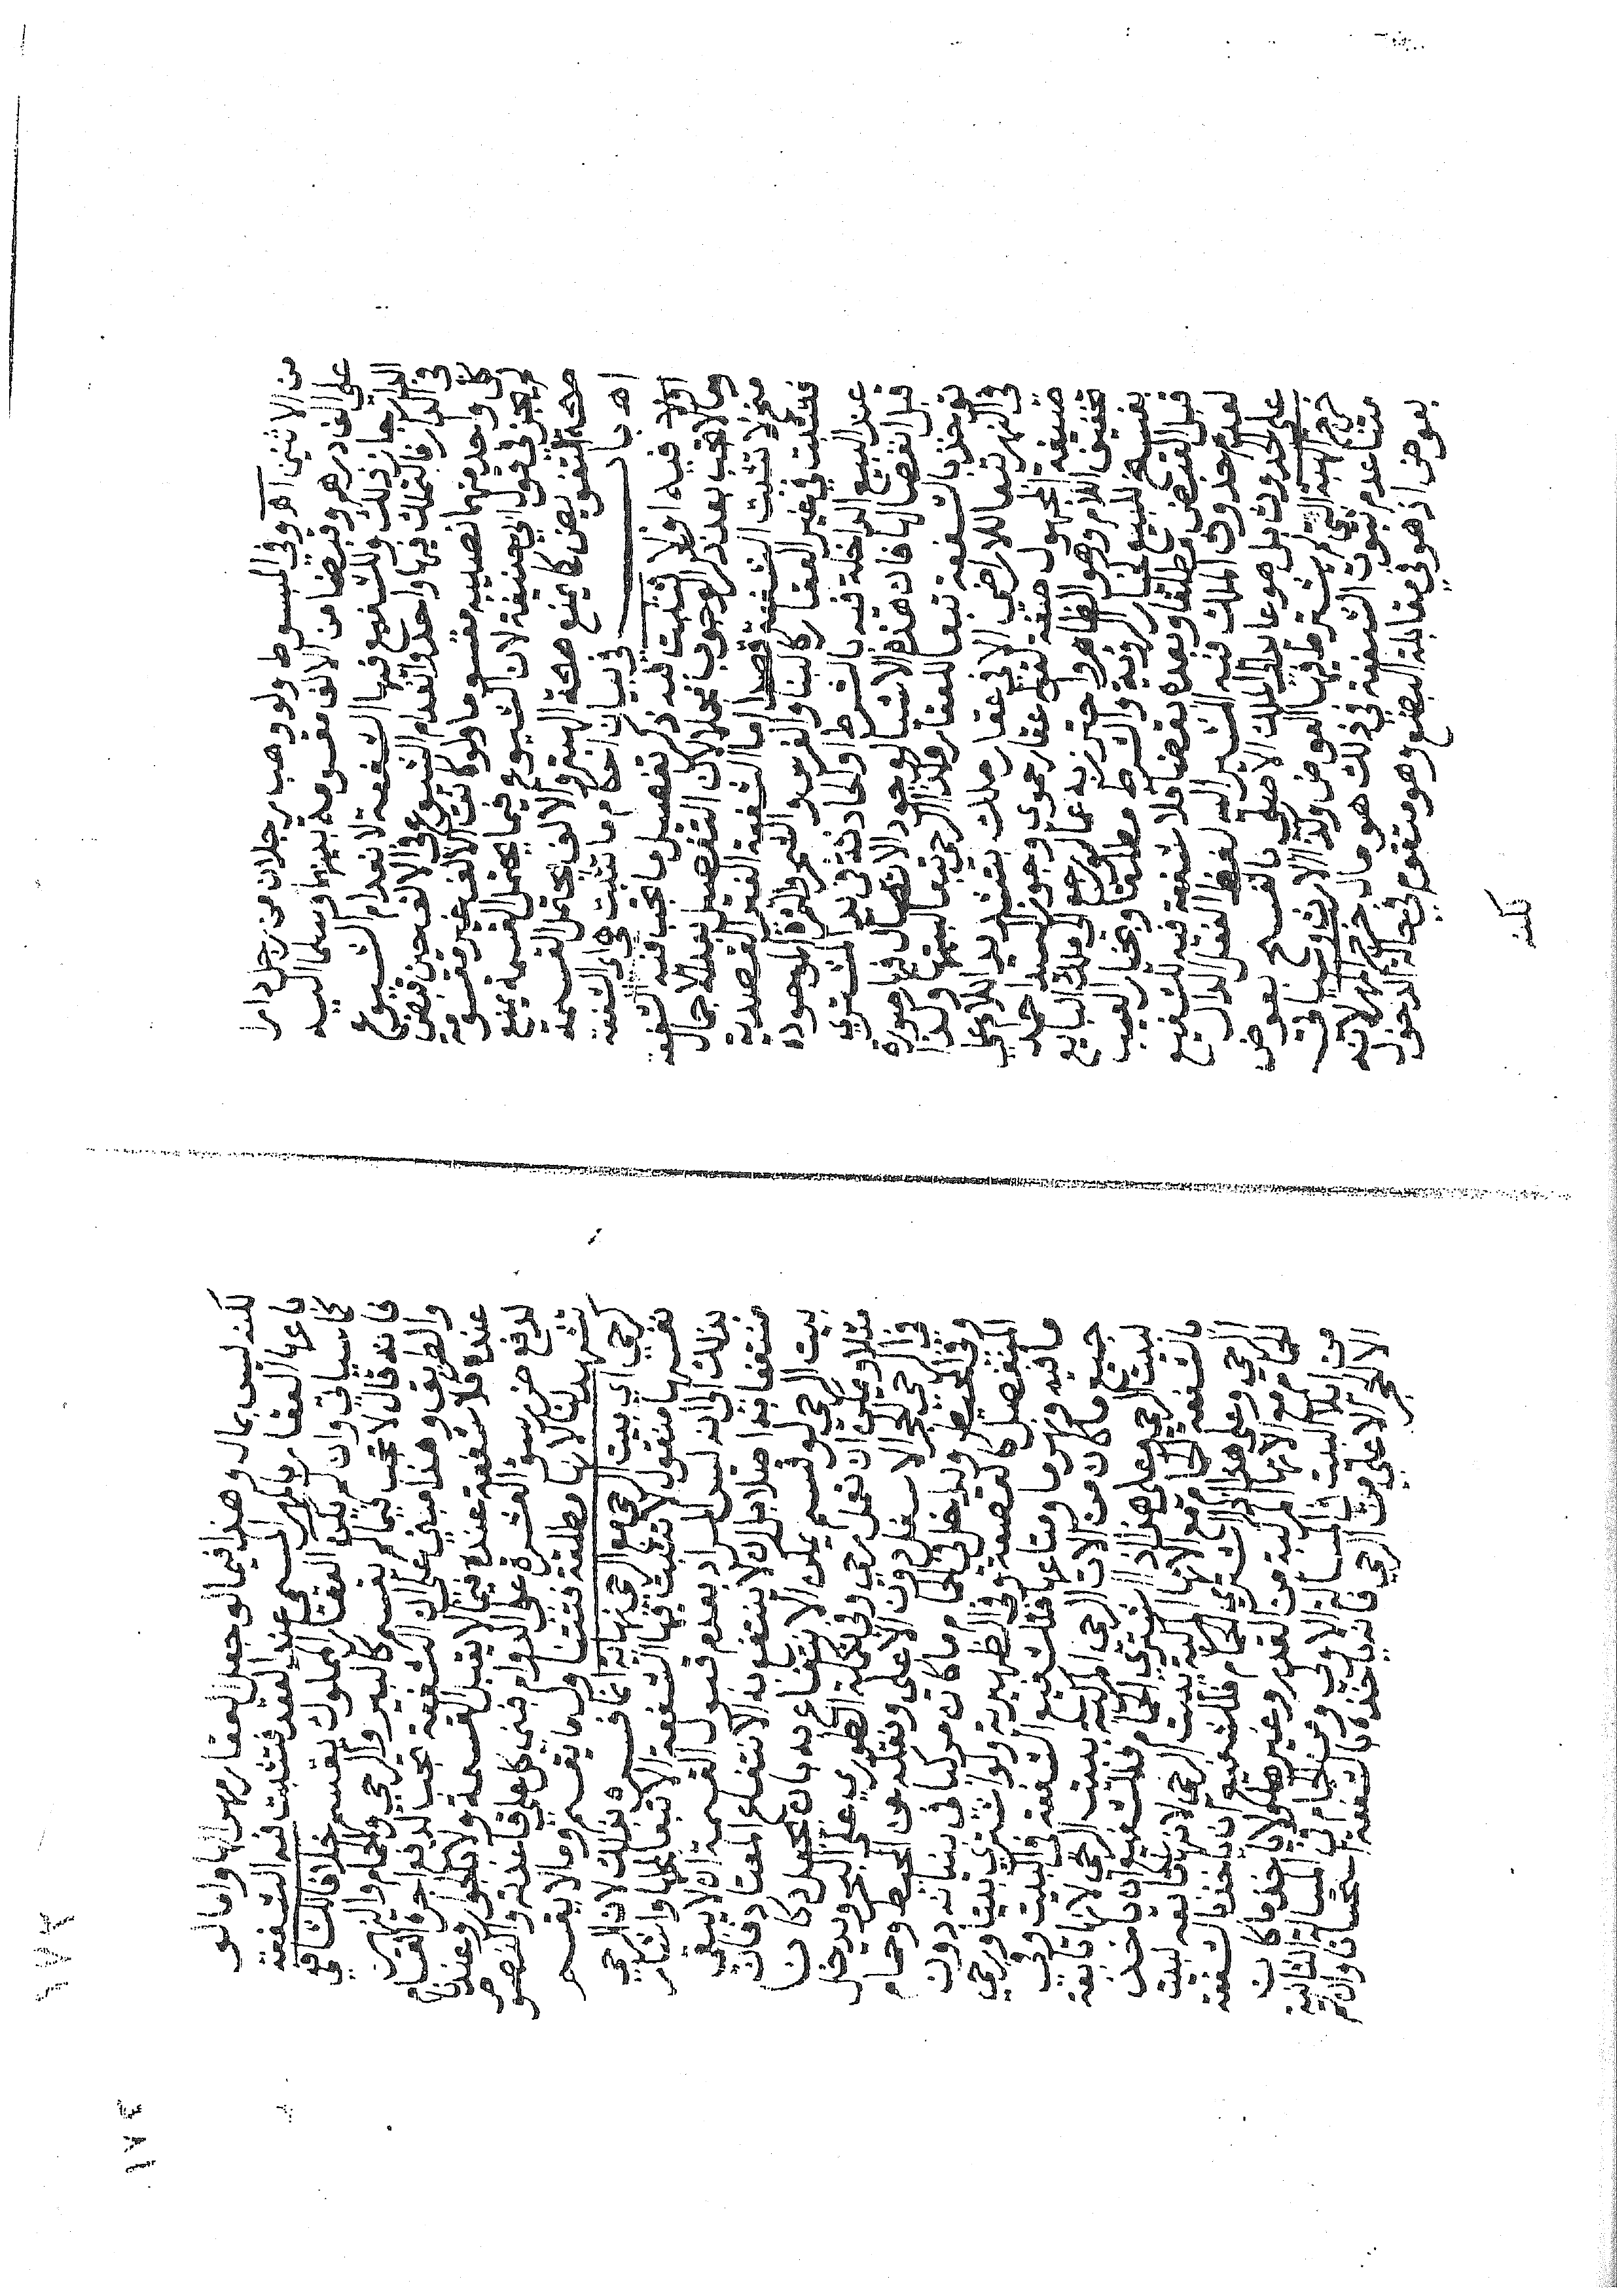 من الاثنين اهـ وفي المبسوط ولو وهب رجلان من رجل دارا
على الف درهم وقبضا منه الالف مقسومة بينهما وسلما اليه
الدار جاز ذلك وللشفيع فيها الشفعة لانعدام الشيوع
في الدار فالمتملك فيها واحد ولانعدام الشيوع في الالف حين قبض
كل واحد منهما نصيبه مقسوما ولو كانت الالف غير مقسومة
لم يجز في قول ابي حنيفة لان الشيوع فيما يحتمل القسمة يمنع
صحة التعويض كما يمنع صحة الهبة والالف يحتمل القسمة
اهـ باب في بيان احكام ما تثبت هي اي الشفعة
فيه اولا تثبت فيه ذكر تفصيل ما تجب فيه الشفعة
وما لا تجب بعد ذكر الوجوب مجملا لان التفصيل بعد الاجمال
نعم لا تثبت الشفعة قصدا اما الشفعة الغير القصدية
فتثبت في غير العقار كالبنا والغرس والثمر والثمرة الموجودة
عند البيع الداخلة فيه بالشرط او الحادثة في يد المشتري
قبل انفصالها فان هذه الاشيا لوجود الاتصال فيها صورة
تؤخذ بالشفعة تبعا للعقار وكذا الرحى تبعا لبيتها وكذا
في النهر تبعا للاراضي الا في عقار ملك بتشديد اللام على
صيغة المجهول صفة لقوله عقار حموي وجوز السيد احمد
تخفيف اللام وهو الظاهر واحترز به عما لم يرجع الى ملك البايع
بفسخ للبيع بخيار رؤية والشرط مطلقا وبخيار العيب
قبل القبض مطلقا وبعده بقضا فلا شفعة فيه للشفيع
لعدم حدوث الملك فيه اشير اليه بلفظ النقل الدال
على الحدوث بل هو عايد الى الملك الاصلي بالفسخ بعوض
خرج الهبة التي لم يشترط فيها العوض وكذا الارث وسياتي
متنا عدم ثبوت الشفعة في ذلك هو مال خرج المهر لانه
بعوض اذ هو في مقابلة البضع وهو متقوم في حالة الدخول
لكنه
لكنه ليس بمال وهذا فيما لو جعل العقار مهرا لها واما لو
باعها العقار بالمهر المسمى عند العقد فتثبت فيه الشفعة
كما سياتي وان لم يكن العقار المملوك يقسم خلافا للشافعي
فانه قال لا تجب فيما لم يقسم كالبير والرحى والحمام والنهر
والطريق وهذا مبني على ان الشفعة تجب لدفع اجرة القسام
عنده فلا شفعة عنده فيما لا يقبل القسمة وعندنا
لدفع ضرر سوء العشرة على الدوام فبنى كل على قاعدته والنصوص
تشهد لنا لانها مطلقة فتتناول ما يقسم وما لا يقسم
كرحى اي بيت الرحى مع الرحى نهاية انما فسره بذلك لان الرحى
نفسها منقول لا تثبت فيها الشفعة الا تبعا لمحلها واشار
بذلك الى انه ليس المراد بعدم قبول القسمة ان لا يبقى
منتفعا به اصلا بل ان لا ينتفع به الانتفاع المعتاد فان
بيت الرحى لو قسم يمكن الانتفاع به بان يجعل دكان
مثلا ويمكن ان تعمل رحى وفي تكملة الطوري على البحر ويدخل
في الرحى الحجر الاسفل دون الاعلى ونقله عن المحيط وحمام
وفي المحيط ويدخل في الحمام ما كان مركبا في بنيانه دون
المنفصل كالقصعة وفي الظهيرية ولو اشترى بيتا ورحى
ما فيه ونهرها ومتاعها فللشفيع الشفعة في البيت وفي
جميع ما كان من الات الرحى المركبة ببيت الرحى لانها تابعة
لبيت الرحى وعلى هذا اذا اشترى الحمام فللشفيع ان ياخذ
بالشفعة الحمام مع الاتها المركبة بيت الرحى لانها تابعة لبيت
الرحى وعلى هذا اذا اشترى الحمام فللشفيع ان ياخذ بالشفعة
الحمام مع الاتها المركبة من القدر وغيرها ولا ياخذ ما كان
مزايلا البيت في المسالة الاولى ومن الحمام في المسالة الثانية
الا الحجر الاعلى من الرحى فانه ياخذه بالشفعة استحسانا وان لم
١٧٤
١٧٤